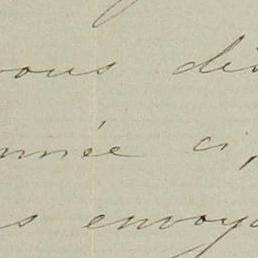 vous dé
nnée ci,
s envoya